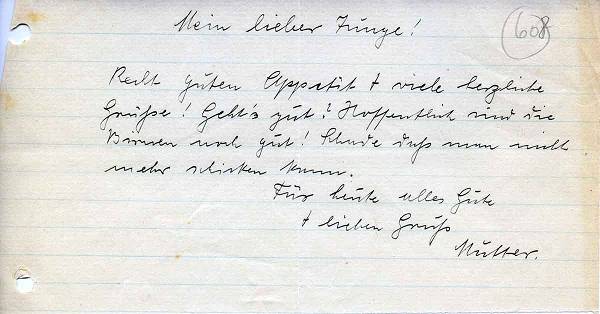 Mein lieber Junge!
608
Recht guten Appetit + viele herzliche
Grüße! Geht's gut? Hoffentlich sind die
Birnen noch gut! Schade daß man nicht
mehr schicken kann.
Für heute alles Gute
+ lieben Gruß
Mutter.